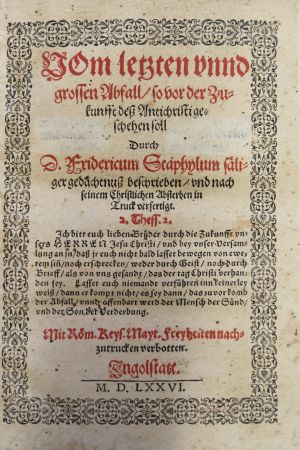 VOm letzten vnnd
grossen Abfall / so vor der Zu-
kunfft deß Antichristi ge-
schehen soll
Durch
D. Fridericum Staphylum säli-
ger gedächtnuß beschrieben / vnd nach
seinem Christlichen Absterben in
Truck verfertigt.
2. Thess. 2.
Ich bitt euch lieben Brüder durch die Zukunfft vn-
sers HERREN Jesu Christi / vnd bey vnser Versam-
lung an jn / daß jr euch nicht bald lasset bewegen von ewe-
rem siñ / noch erschrecken / weder durch Geist / noch durch
Brieff / als von vns gesandt / das der tag Christi verhan-
den sey. Lasset euch niemandt verführen inn keinerley
weiß / dann er kompt nicht / es sey dann / das zuvor komb
der Abfall / vnnd offenbart werd der Mensch der Sünd /
vnd der Son der Verderbung.
Mit Röm. Keys. Mayt. Freyheiten nach-
zutrucken verbotten.
Ingolstatt.
M. D. LXXVI.